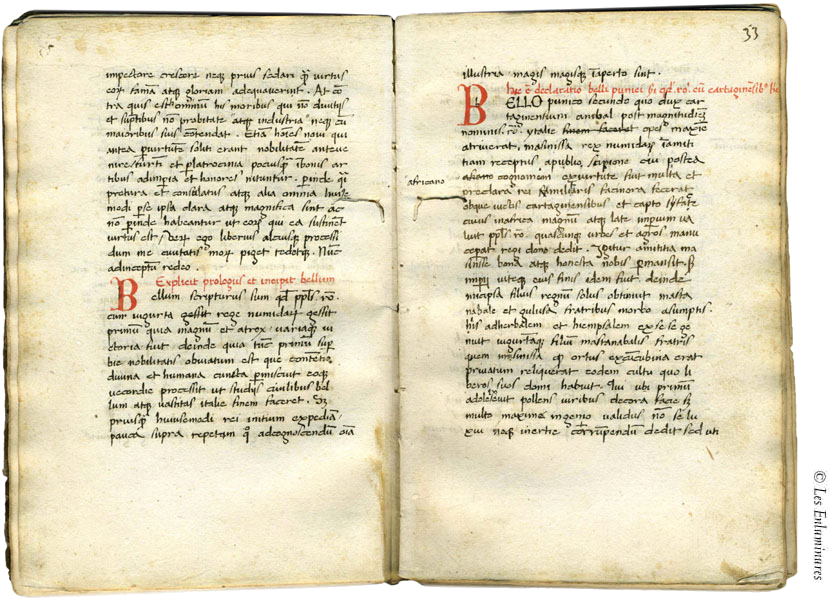 impectore crescere neq; prius sedari q̄ virtus
eor famā atq; gloriam adequaverint. At cō
tra quis est omniū his moribus qui nō divitijs
et sūptibus nō probitate atq; industria neq; cū
maioribus suis cōtendat. Etiā hōies novi qui
antea virtutem soliti erant nobilitatem anteve
nire furtī et latrocinia ibonis ar
tibus adimpia et honores nituntur. perinde q̄i
pretura et cōsulatus atq; alia omnia huiꝰce
modi p se ipsa clara atq; magnifica sint ac
nō perinde habeantur ut eor qui ea sustinent
virtus est. Ver ego liberius altiusq; processi
dum me civitatis mor piget tedetq; Nūc
adinceptū redeo.
Explicit prologus et incipit bellium
Bellum scripturus sum qd ppls ro.
cum iugurta gessit rege numidar gessit
primū quia magnū et atrox variaq; vi
ctoria fuit deinde quia tūc primū sup
bie nobilitatis obviatum est que contentio
divina et humana cuncta pmiscuit eoq;
vecordie processit ut studijs civilibus bel
lum atq; vastitas italie finem faceret. Sz
priusq̄ huiusmodi rei initium expediā
pauca supra repetam qo adcognoscendū oīa
33
illustria magis magisq; īaperto sint.
hic ē declaratio belli punici
BELLO punico secundo quo dux car
taginensium anibal post magnitudinē
nominis ro. ytalie finem faceret opes maxīe
atriverat, masinissa rex numidar īamiti
tiam receptus apublio scipione cui postea
africano
cognomen exvirtute fuit multa et
preclara rei militaris facinora fecerat
obque victis cartaginensibus et capto syface
cuius inafrica magnū atq; late impium va
luit ppls ro. quascunq; urbes et agros manu
ceperat regi dono dedit. Igitur amititia ma
sinisse bona atq; honesta nobis permansit. Sz
impij viteq; eius finis idem fuit deinde
micipsa filius regnū solus obtinuit masta
nabale et gulusa fratribus morbo asumptis.
his adherbalem et hiempsalem ex se se ge
nuit iugurtāq; filiū mastanabalis fratris
quem masinissa q ortus exconcubina erat
privatum reliquerat eodem cultu quo li
beros suos domi habuit. Iui ubi primū
adolevit pollens viribus decora facie sz
multo maxime ingenio validus nō se lu
xui neq; inertie corrumpendū dedit sed uti
© Les Enluminures